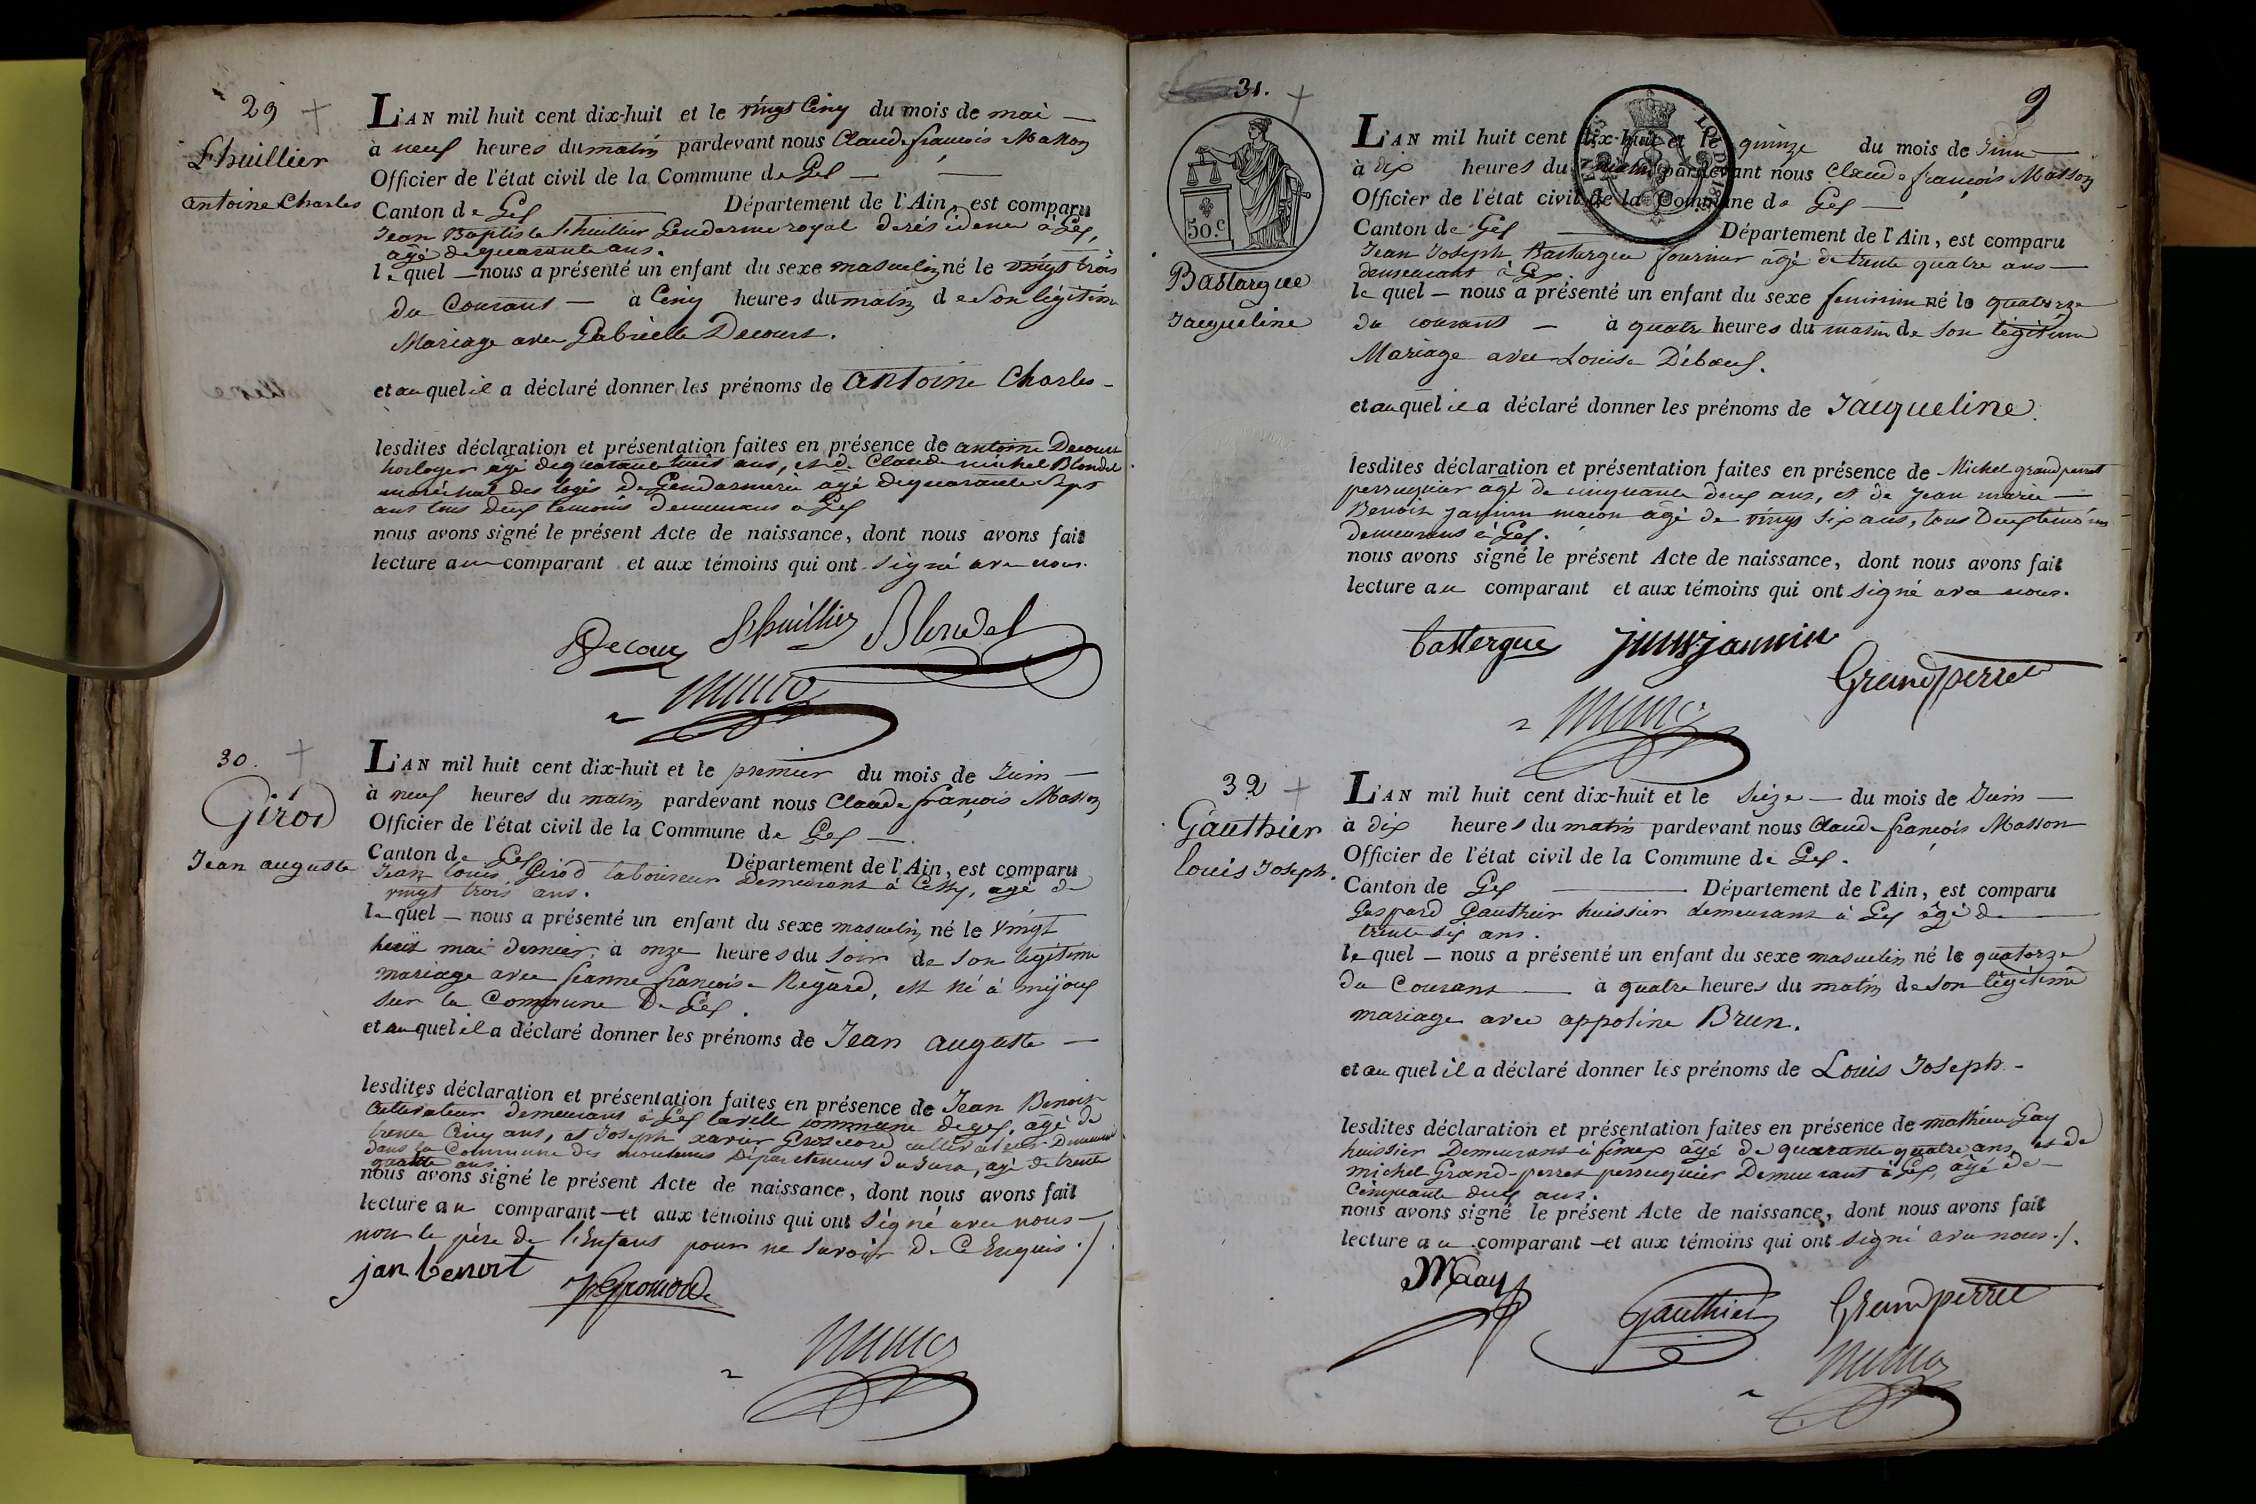 29
Lhuillier
antoine Charles
L'AN mil huit cent dix-huit et le vingt Cinq du mois de mai —
à neuf heures du matin pardevant nous Claude françois Masson
Officier de l'état civil de la Commune de Gex —
Canton de Gex Département de l'Ain, est comparu
Jean Baptiste Lhuillier Gendarme royal de résidence à Gex,
âgé de quarante ans.
le quel — nous a présenté un enfant du sexe masculin né le vingt trois
du Courant — à Cinq heures du matin de son légitime
Mariage avec Gabrielle Decourt.
et auquel il a déclaré donner les prénoms de antoine Charles —
lesdites déclaration et présentation faites en présence de antoine Decourt
horloger âgé de quarante trois ans, et de Claude michel Blondel
maréchal des logis de Gendarmerie âgé de quarante Sept
ans tous deux témoins demeurans à Gex
nous avons signé le présent Acte de naissance, dont nous avons fait
lecture au comparant et aux témoins qui ont signé avec nous.
Decour Lhuillier Blondel
30.
Girod
Jean auguste
L'AN mil huit cent dix-huit et le premier du mois de Juin —
à neuf heures du matin pardevant nous Claude françois Masson
Officier de l'état civil de la Commune de Gex —
Canton de Gex Département de l'Ain, est comparu
Jean louis Girod laboureur demeurant à Cessy, agé de
vingt trois ans.
le quel — nous a présenté un enfant du sexe masculin né le vingt
huit mai dernier à onze heures du soir de son légitime
mariage avec Jeanne françoise Regard, est né à mijoux
sur la Commune De Gex.
et auquel il a déclaré donner les prénoms de Jean auguste —
lesdites déclaration et présentation faites en présence de Jean Benoit
Cultivateur demeurant à Gex la ville commune de gex, agé de
trente Cinq ans, et Joseph xavier Grosclaude cultivateur Demeurant
dans la Commune des moulunes Département du Jura, agé de trente
quatre ans
nous avons signé le présent Acte de naissance, dont nous avons fait
lecture au comparant — et aux témoins qui ont signé avec nous —
non le père de l'Enfant pour ne savoir De Ce Enquis ./
jan benoit
31.
9
50.c
Bastargue
Jacqueline
L'AN mil huit cent dix-huit et le quinze du mois de Juin —
à dix heures du matin pardevant nous Claude françois Masson
Officier de l'état civil de la Commune de Gex —
Canton de Gex — Département de l'Ain, est comparu
Jean Joseph Bastargue fournier agé de trente quatre ans —
demeurant à Gex.
le quel — nous a présenté un enfant du sexe feminin né le quatorze
du courant — à quatre heures du matin de son légitime
Mariage avec Louise Débœuf.
et auquel il a déclaré donner les prénoms de Jacqueline.
lesdites déclaration et présentation faites en présence de Michel grandperret
perruquier agé de cinquante deux ans, et de Jean marie —
Benoit janin macon agé de vingt six ans, tous Deux témoins
demeurans à Gex.
nous avons signé le présent Acte de naissance, dont nous avons fait
lecture au comparant et aux témoins qui ont signé avec nous.
bastergue
Grandperret
32
Gauthier
louis Joseph.
L'AN mil huit cent dix-huit et le Seize — du mois de Juin —
à dix heures du matin pardevant nous Claude françois Masson
Officier de l'état civil de la Commune de Gex.
Canton de Gex — Département de l'Ain, est comparu
Gaspard Gauthier huissier demeurant à Gex âgé de —
trente six ans.
le quel — nous a présenté un enfant du sexe masculin né le quatorze
du Courant — à quatre heures du matin de son légitime
mariage avec appoline Brun.
et auquel il a déclaré donner les prénoms de Louis Joseph —
lesdites déclaration et présentation faites en présence de mathieu Gay
huissier Demeurant à âgé de quarante quatre ans, et de
michel Grand-perret perruquier Demeurant à Gex, âgé de —
Cinquante deux ans.
nous avons signé le présent Acte de naissance, dont nous avons fait
lecture au comparant — et aux témoins qui ont signé avec nous ./.
MGay
Gauthier Grandperret